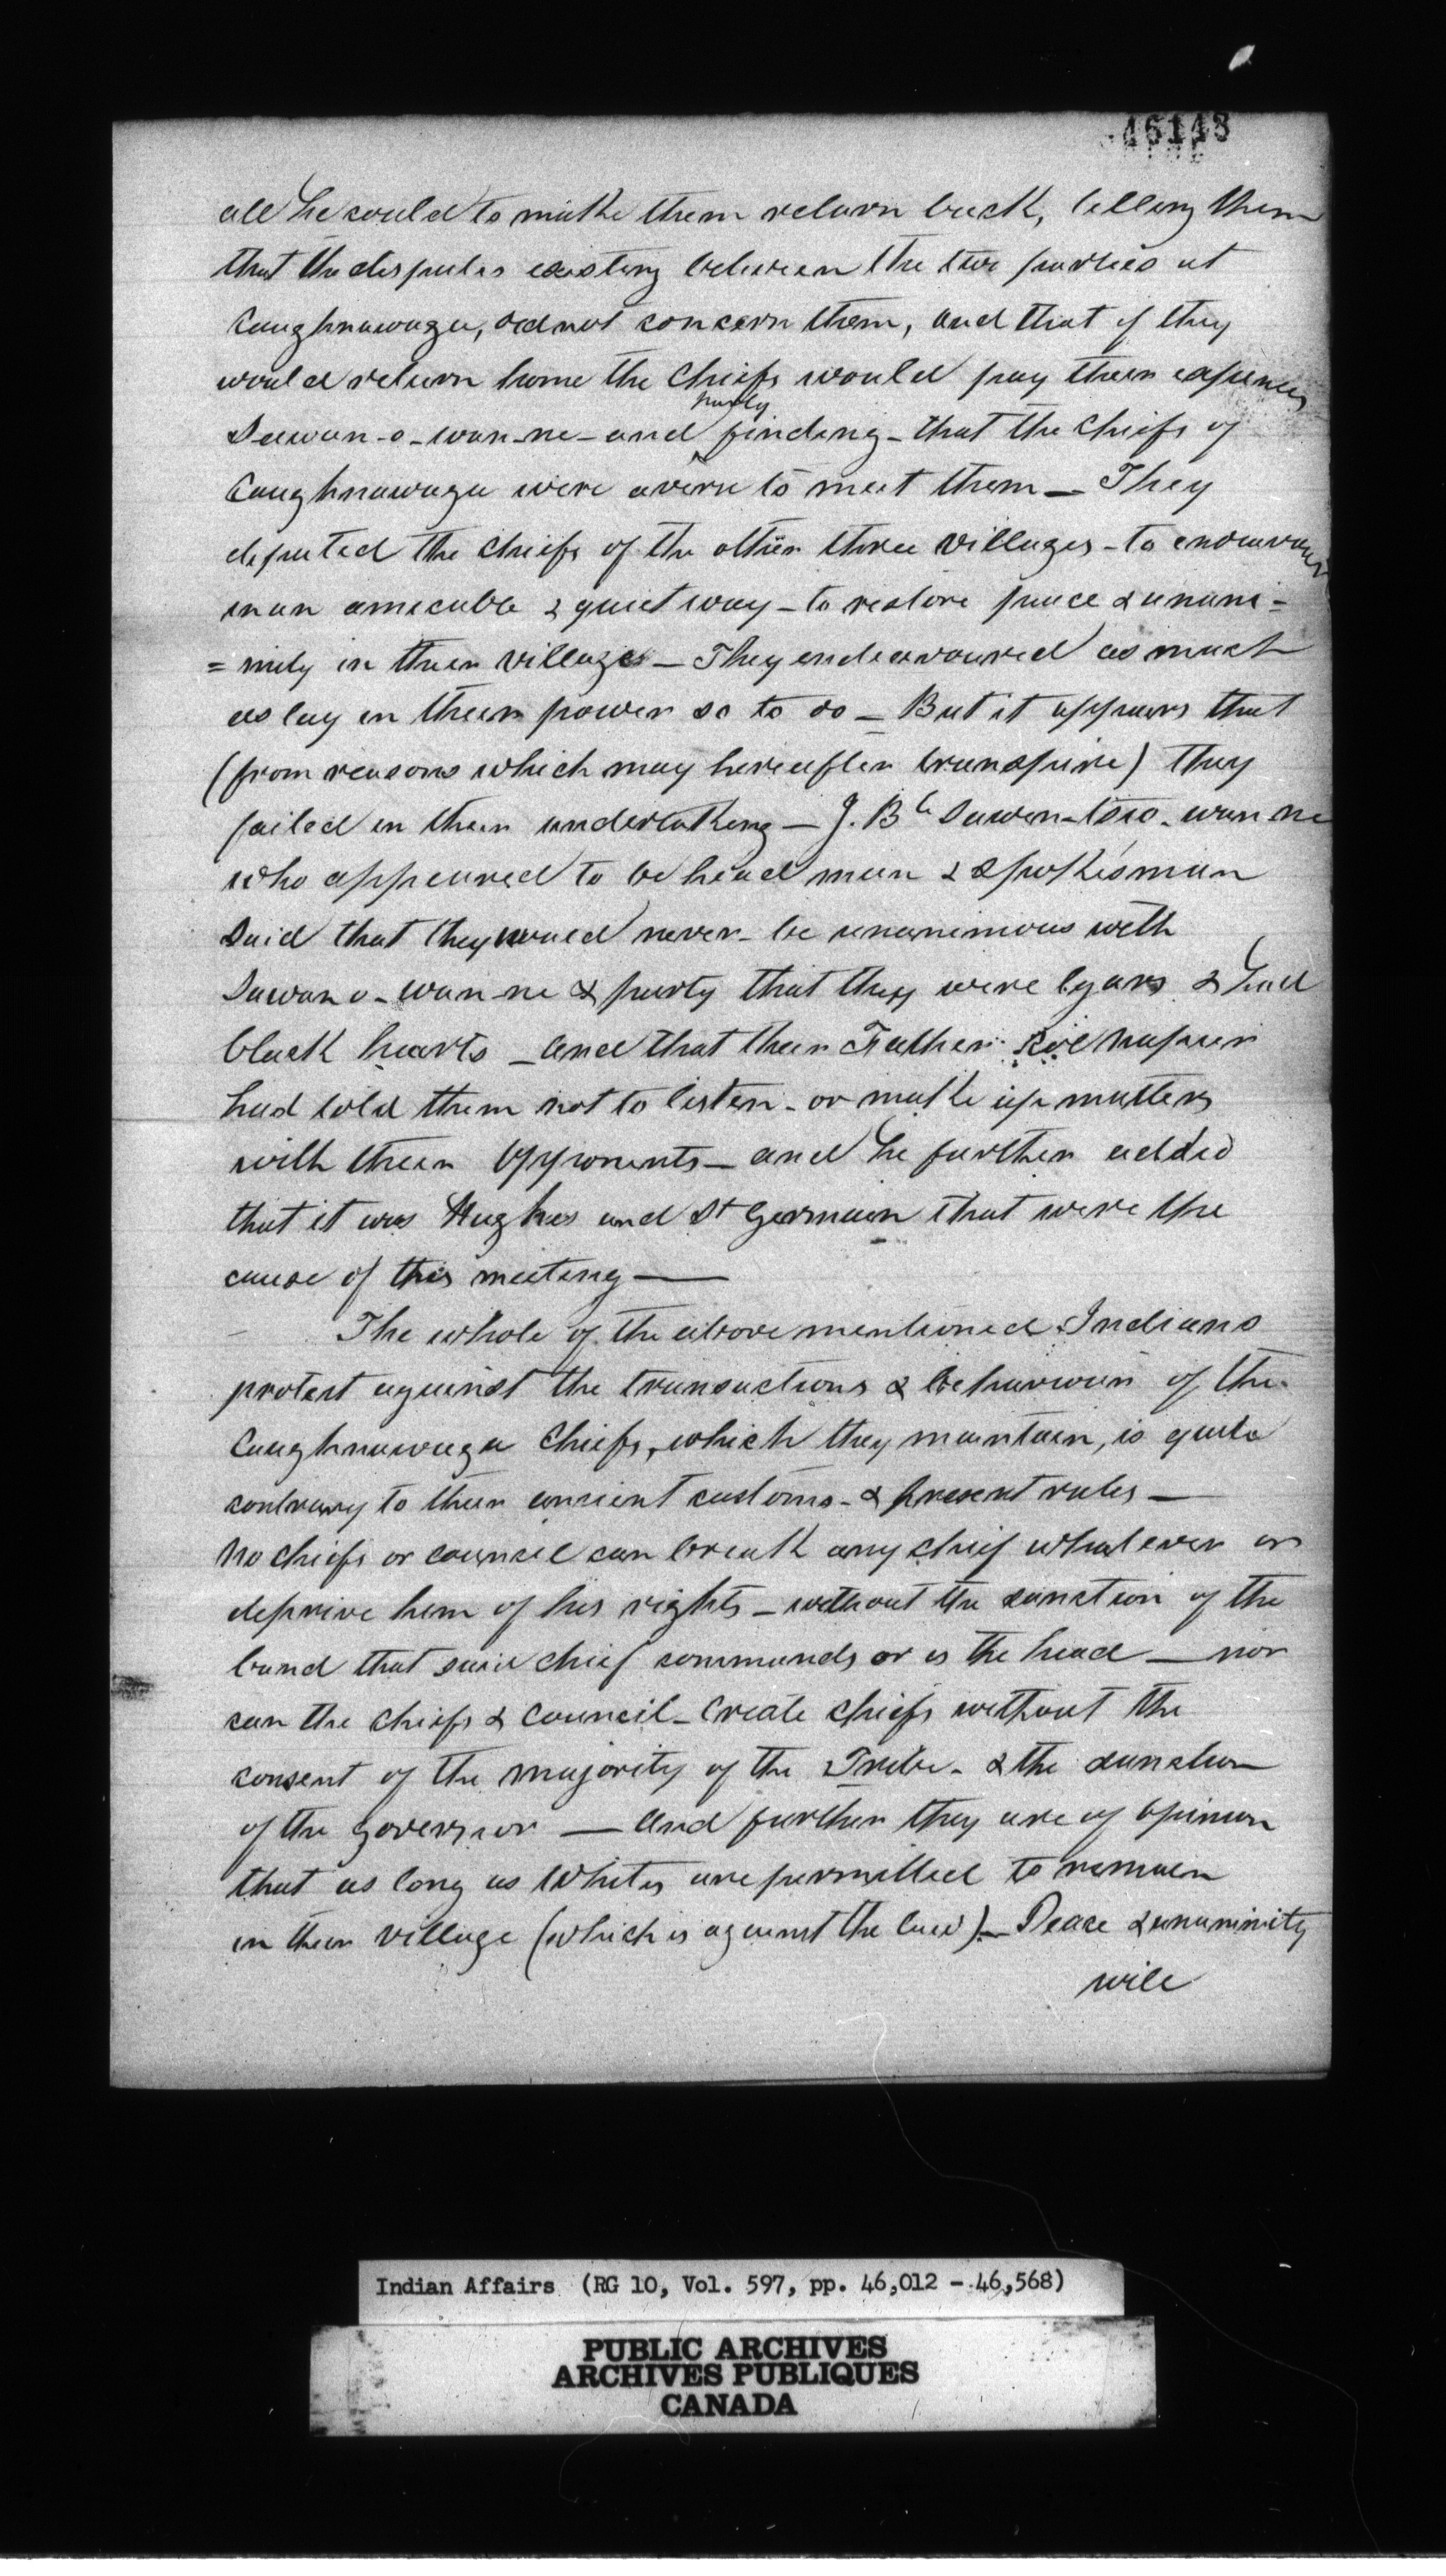 46148
all he could to make them return back, telling them
that the disputes existing between the two parties at
Caughnawaga, did not concern them, and that if they
would return home the Chiefs would pay their expenses
party
Sawan-o-wan-ne-and finding-that the Chiefs of
Caughnawaga were averse to meet them — They
deputed the Chiefs of the other three Villages - to endeavour
in an amicable & quiet way - to restore peace & unani=
=mity in their Villages - They endeavoured as much
as lay in their power so to do - But it appears that
(from reasons which may hereafter transpire) they
failed in their undertaking - J. Bte
who appeared to be head man & Spokesman
Said that they would never- be unanimous with
Sawan o-wan-ne & party that they were lyars & had
black hearts - and that their Father Col Napier
had told them not to listen - or make up matters
with their Opponents - and he further added
that it was Hughes and St Germain that were the
cause of this meeting —
The whole of the above mentioned Indians
protest against the transactions & behaviour of the
Caughnawaga Chiefs, which they maintain, is quite
contrary to their ancient customs - & present rules —
No chiefs or council can break any chief whatever or
deprive him of his rights - without the sanction of the
band that said chief commands or is the head — nor
can the chiefs & Council - Create chiefs without the
consent of the majority of the Tribe - & the sanction
of the Governor — And further they are of opinion
that as long as Whites are permitted to remain
in their Village (which is against the law) - Peace & unanimity
will
Indian Affairs (RG 10, Vol. 597, pp. 46,012 - 46,568)
PUBLIC ARCHIVES
ARCHIVES PUBLIQUES
CANADA